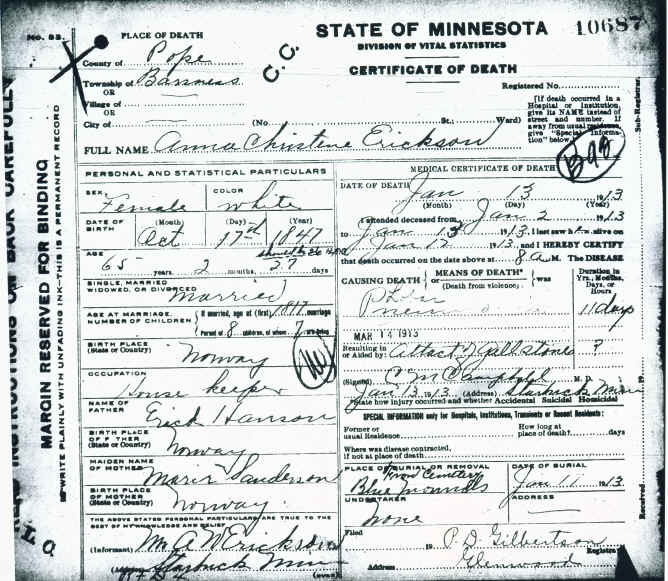 No. 53.
PLACE OF DEATH
County of Pope
Township of Barsness
OR
Village of
OR
City of
C.C.
STATE OF MINNESOTA
DIVISION OF VITAL STATISTICS
CERTIFICATE OF DEATH
10687
Registered No.
(No. St.; Ward)
[If death occurred in a Hospital or Institution, give its NAME instead of street and number. If away from usual residence, give "Special Information" below.]
FULL NAME Anna Christene Erickson
MARGIN RESERVED FOR BINDING
WRITE PLAINLY WITH UNFADING INK—THIS IS A PERMANENT RECORD
INSTRUCTIONS ON BACK CAREFULLY
PERSONAL AND STATISTICAL PARTICULARS
SEX Female
COLOR White
DATE OF BIRTH
(Month) (Day) (Year)
Oct 17th 1847
AGE
65 years 2 months, 27 days
SINGLE, MARRIED WIDOWED, OR DIVORCED
Married
AGE AT MARRIAGE, NUMBER OF CHILDREN
If married, age at (first) marriage
Parent of 8 children, of whom 7 are living
BIRTH PLACE (State or Country)
Norway
OCCUPATION
House keeper
NAME OF FATHER
Erick Hanson
BIRTH PLACE OF FATHER (State or Country)
Norway
MAIDEN NAME OF MOTHER
Sanderson
BIRTH PLACE OF MOTHER (State or Country)
Norway
THE ABOVE STATED PERSONAL PARTICULARS ARE TRUE TO THE BEST OF MY KNOWLEDGE AND BELIEF
(Informant) Mr A W Erickson
Starbuck Minn
(OVER)
MEDICAL CERTIFICATE OF DEATH
DATE OF DEATH Jan 13 1913
(Month) (Day) (Year)
I attended deceased from Jan 2 1913
to Jan 13 1913, I last saw her alive on
Jan 12 1913, and I HEREBY CERTIFY
that death occurred on the date above at 8 a M. The DISEASE
CAUSING DEATH or MEANS OF DEATH* (Death from violence) was
Duration in Yrs., Months, Days, or Hours
11 days
MAR 14 1913
Resulting in or Aided by: Attact of Gallstones ?
(Signed) C M Campbell M. D.
Jan 13 1913 (Address) Starbuck Minn
*State how injury occurred and whether Accidental Suicidal Homicidal
SPECIAL INFORMATION only for Hospitals, Institutions, Transients or Recent Residents:
Former or usual Residence
How long at place of death? days
Where was disease contracted, if not at place of death
PLACE OF BURIAL OR REMOVAL
Cemetery
Blue mounds
DATE OF BURIAL
Jan 1913
UNDERTAKER
none
ADDRESS
Filed 19
P. D. Gilbertson
Registrar
Address Glenwood
Sub-Registrar
Received
L Q